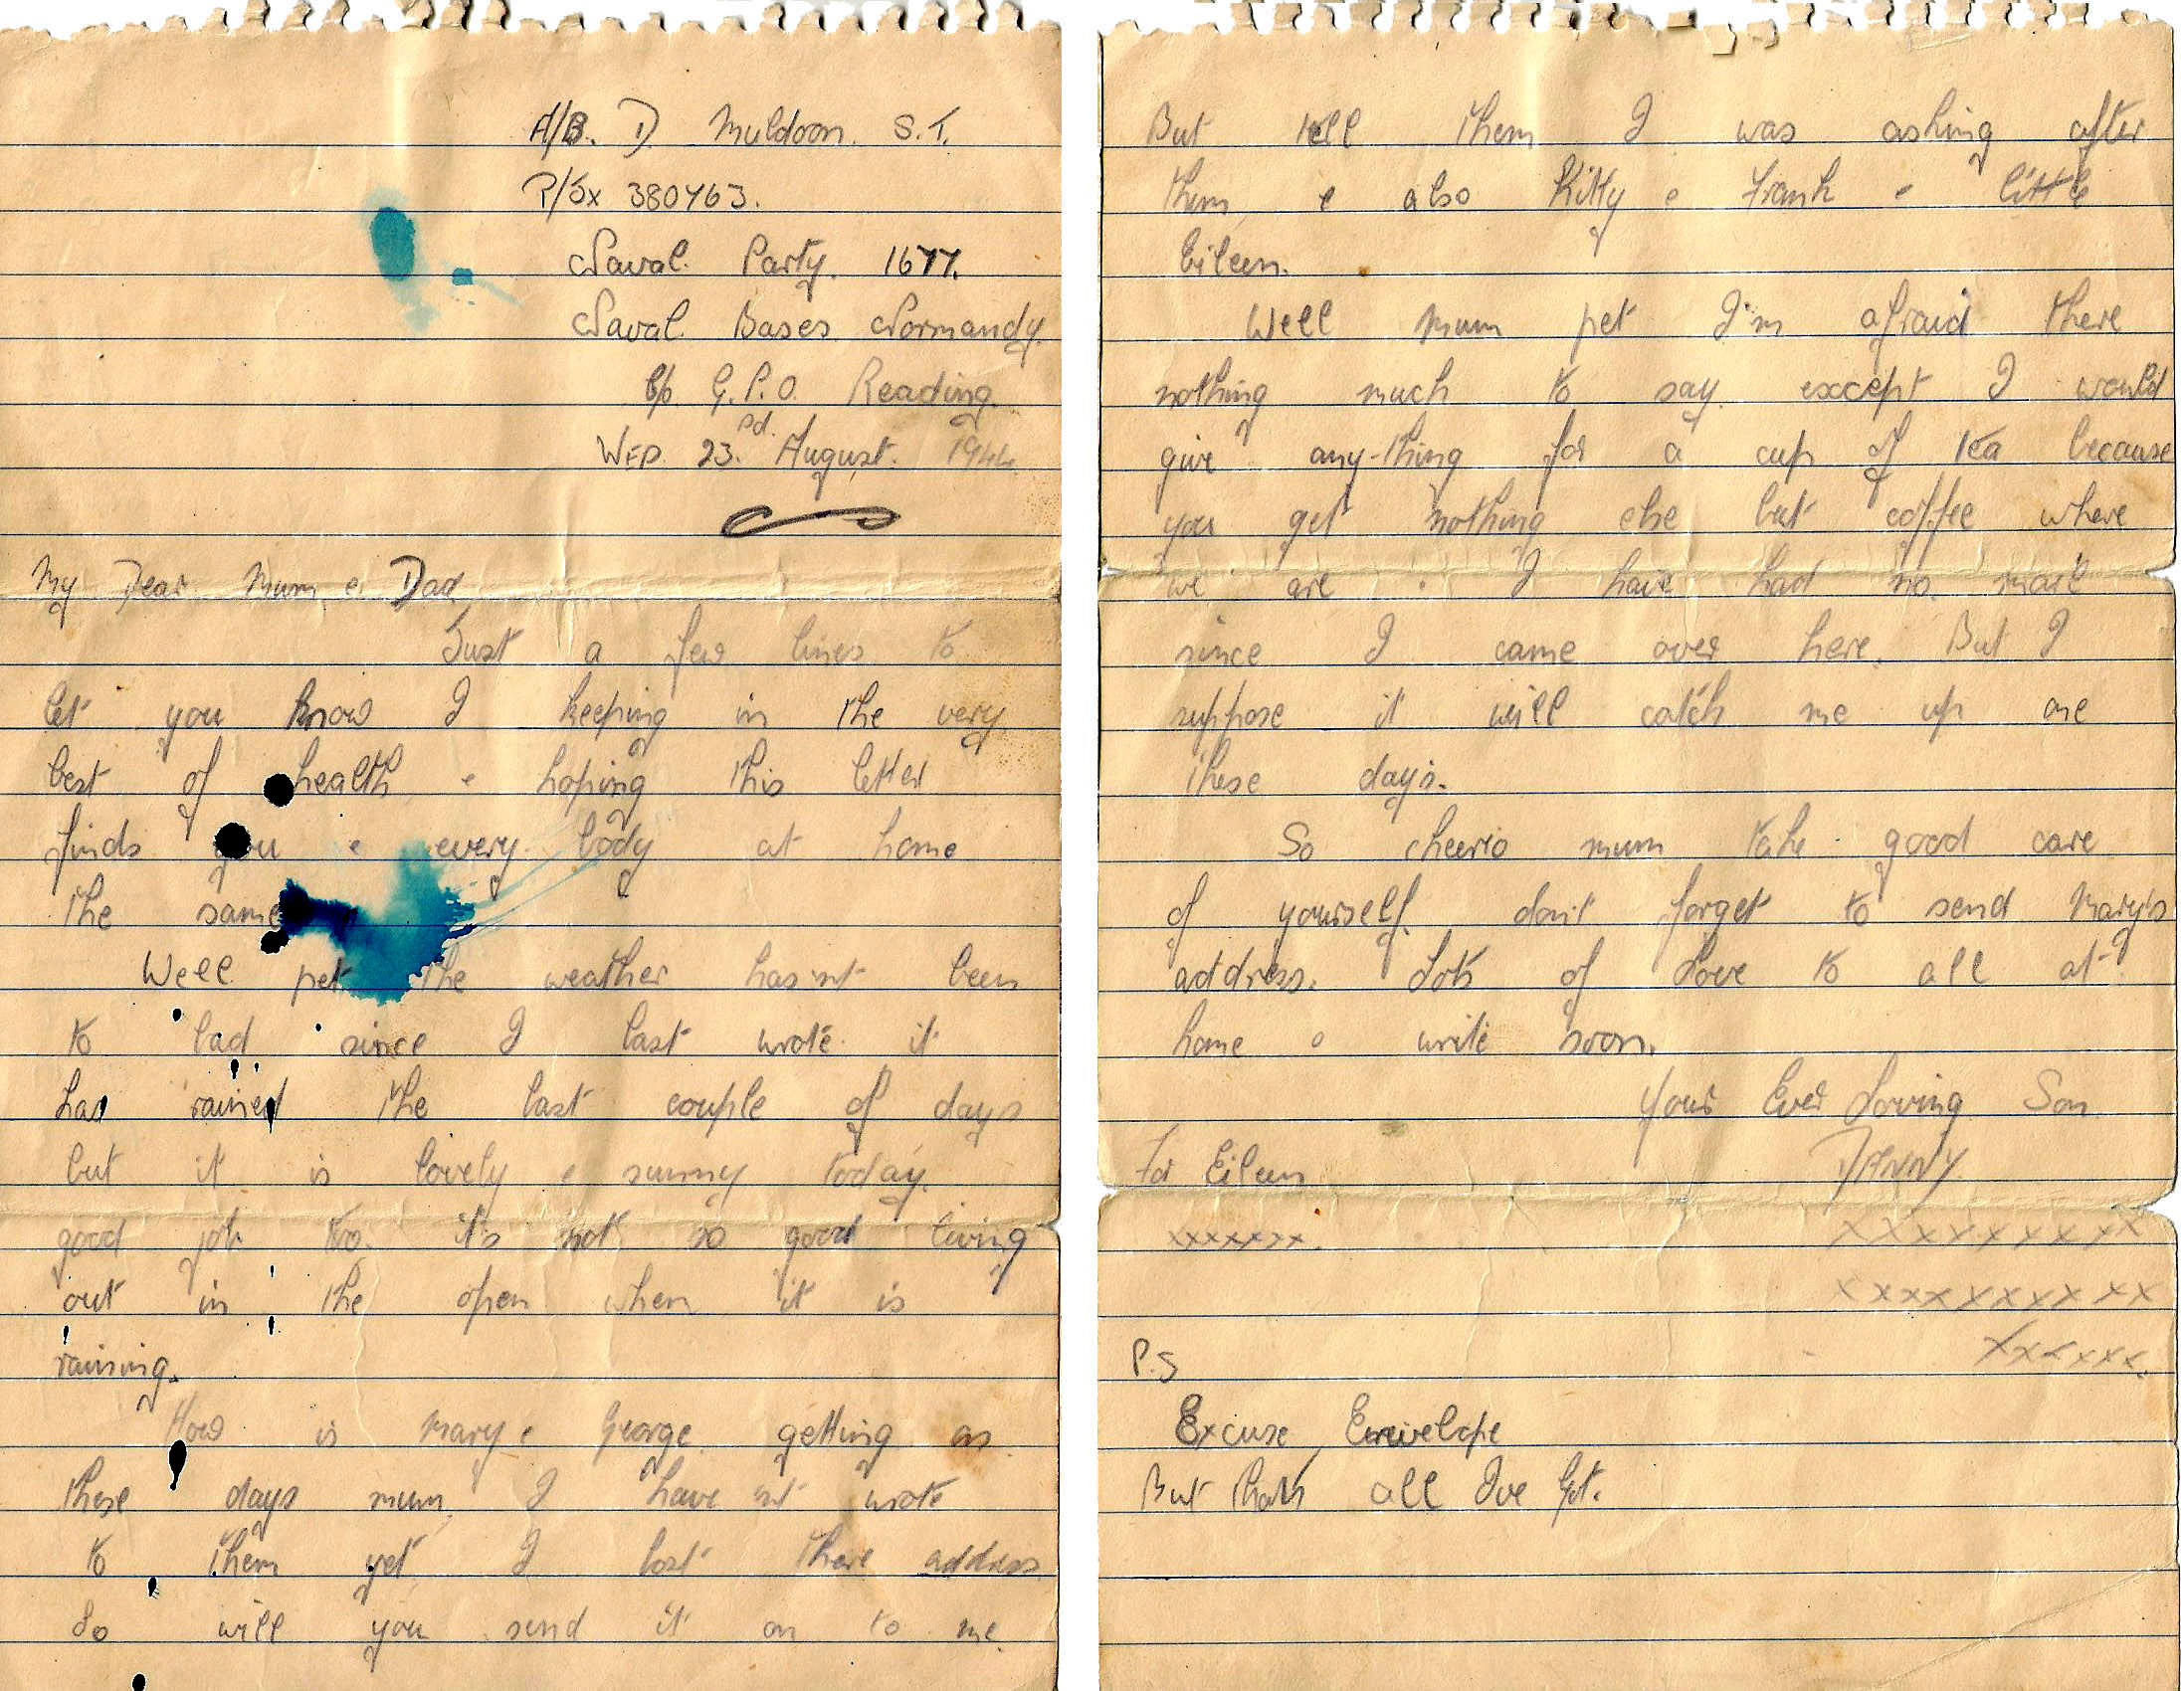 A/B. D Muldoon. S.T.
P/Jx 380463.
Naval. Party. 1677.
Naval. Bases Normandy.
C/o G.P.O. Reading.
WED. 23.rd. August. 1944.
My Dear Mum e Dad
Just a few lines to
let you know I keeping in the very
best of health e hoping this letter
finds you e every body at home
the same
Well pet the weather has'nt been
to bad since I last wrote it
has rained the last couple of days
but it is lovely e sunny today.
good job too. it's not so good living
out in the open when it is
raining.
How is Mary e George getting on
these days mum. I have'nt wrote
to them yet I lost there address
So will you send it on to me.
But tell them I was asking after
them, e also Kitty e Frank e little
Eileen.
Well mum pet I'm afraid there
nothing much to say. except I would
give any-thing for a cup of tea because
you get nothing else but coffee where
we are. I have had no mail
since I came over here. But I
suppose it will catch me up one
these days.
So cheerio mum take good care
of yourself. don't forget to send Mary's
address. Lots of Love to all at
home e write soon.
Your Ever Loving Son
For Eileen DANNY
xxxxxxx. xxxxxxxxx
xxxxxxxxxx
P.S xxxxxx.
Excuse Envelope
But thats all Ive Got.